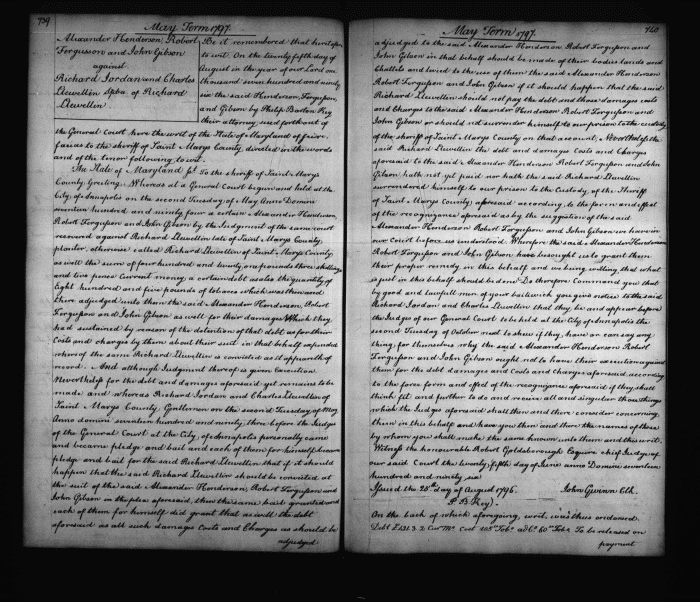 759
May Term 1797.
Alexander Henderson, Robert
Fergusson and John Gibson
against
Richard Jordan and Charles
Llewellin Spba. of Richard
Llewellin.
Be it remembered that heretofore
to wit. On the twenty fifth day of
August in the year of our Lord on
thousand seven hundred and ninety
six the said Henderson, Ferguson,
and Gibson by Philip Barton Key
their attorney, sued forth out of
the General Court here the writ of the State of Maryland of scire
facias to the sheriff of Saint Marys County, directed in the words
and of the tenor following to wit.
The State of Maryland ss. To the sheriff of Saint Marys
County Greeting. Whereas at a General Court begun and held at the
City of Annapolis on the second Tuesday of May Anno Domini
seventeen hundred and ninety four a certain Alexander Henderson
Robert Fergusson and John Gibson by the Judgment of the same court
recovered against Richard Llewellin late of Saint Marys County,
planter, otherwise called Richard Llewellin of Saint Marys County
as well the sum of four hundred and twenty one pounds three shillings
and two pence current money, a certain debt as also the quantity of
Eight hundred and five pounds of tobacco which was then and
there adjudged unto them the said Alexander Henderson, Robert
Ferguson and John Gibson as well for their damages Which they
had sustained by reason of the detention of that debt as for their
Costs and charges by them about their suit in that behalf expended
where of the same Richard Llewellin is convicted as it appears of
record. And although Judgment thereof is given Execution
Nevertheless for the debt and damages aforesaid yet remains to be
made and whereas Richard Jordan and Charles Llewellin of
Saint Marys County Gentlemen on the second Tuesday of May
Anno domini seventeen hundred and ninety three before the Judges
of the General Court at the City of Annapolis personally came
and became pledge and bail and each of them for himself became
pledge and bail for the said Richard Llewellin that if it should
happen that the said Richard Llewellin should be convicted at
the suit of the said Alexander Henderson, Robert Ferguson and
John Gibson in the plea aforesaid, then the same bail granted and
each of them for himself did grant that as well the debt
aforesaid as all such damages Costs and Charges as should be
adjudged
May Term 1797.
760
adjudged to the said Alexander Henderson Robert Ferguson and
John Gibson in that behalf should be made of their bodies lands and
Chattels and levied to the use of them the said Alexander Henderson
Robert Ferguson and John Gibson if it should happen that the said
Richard Llewellin should not pay the debt and those damages costs
and Charges to the said Alexander Henderson Robert Ferguson and
John Gibson or should not surrender himself to our prison to the custody
of the sheriff of Saint Marys County on that account, Nevertheless the
said Richard Llewellin the debt and damages Costs and Charges
aforesaid to the said Alexander Henderson Robert Ferguson and John
Gibson hath not yet paid nor hath the said Richard Llewellin
surrendered himself to our prison to the Custody of the Sheriff
of Saint Marys County aforesaid according to the form and effect
of the recognizance aforesaid as by the suggestion of the said
Alexander Henderson Robert Ferguson and John Gibson we have in
our Court before us understood. Wherefore the said Alexander Henderson
Robert Ferguson and John Gibson have besought us to grant them
their proper remedy in this behalf and we being willing that what
is just in this behalf should be done Do therefore Command you that
by good and lawfull men of your bailiwick you give notice to the said
Richard Jordan and Charles Llewellin that they be and appear before
the Judges of our General Court to be held at the City of Annapolis the
second Tuesday of October next to shew if they have or can say any
thing for themselves why the said Alexander Henderson Robert
Ferguson and John Gibson ought not to have their execution against
them for the debt damages and Costs and charges aforesaid according
to the force form and effect of the recognizance aforesaid if they shall
think fit and further to do and receive all and singular those things
which the Judges aforesaid shall then and there consider concerning
them in this behalf and have you then and there the names of those
by whom you shall make the same known unto them and this writ.
Witness the honourable Robert Goldsborough Esquire chief Judge of
our said Court the twenty fifth day of June anno Domini seventeen
hundred and ninety six
Issued the 25th day of August 1796. John Gwinn Clk.
P. B. Key).
On the back of which aforegoing writ, was thus endorsed.
Debt £421.3.2 Curt My. Cost 805 Tobo. adl. 60 Tobo. To be released on
payment